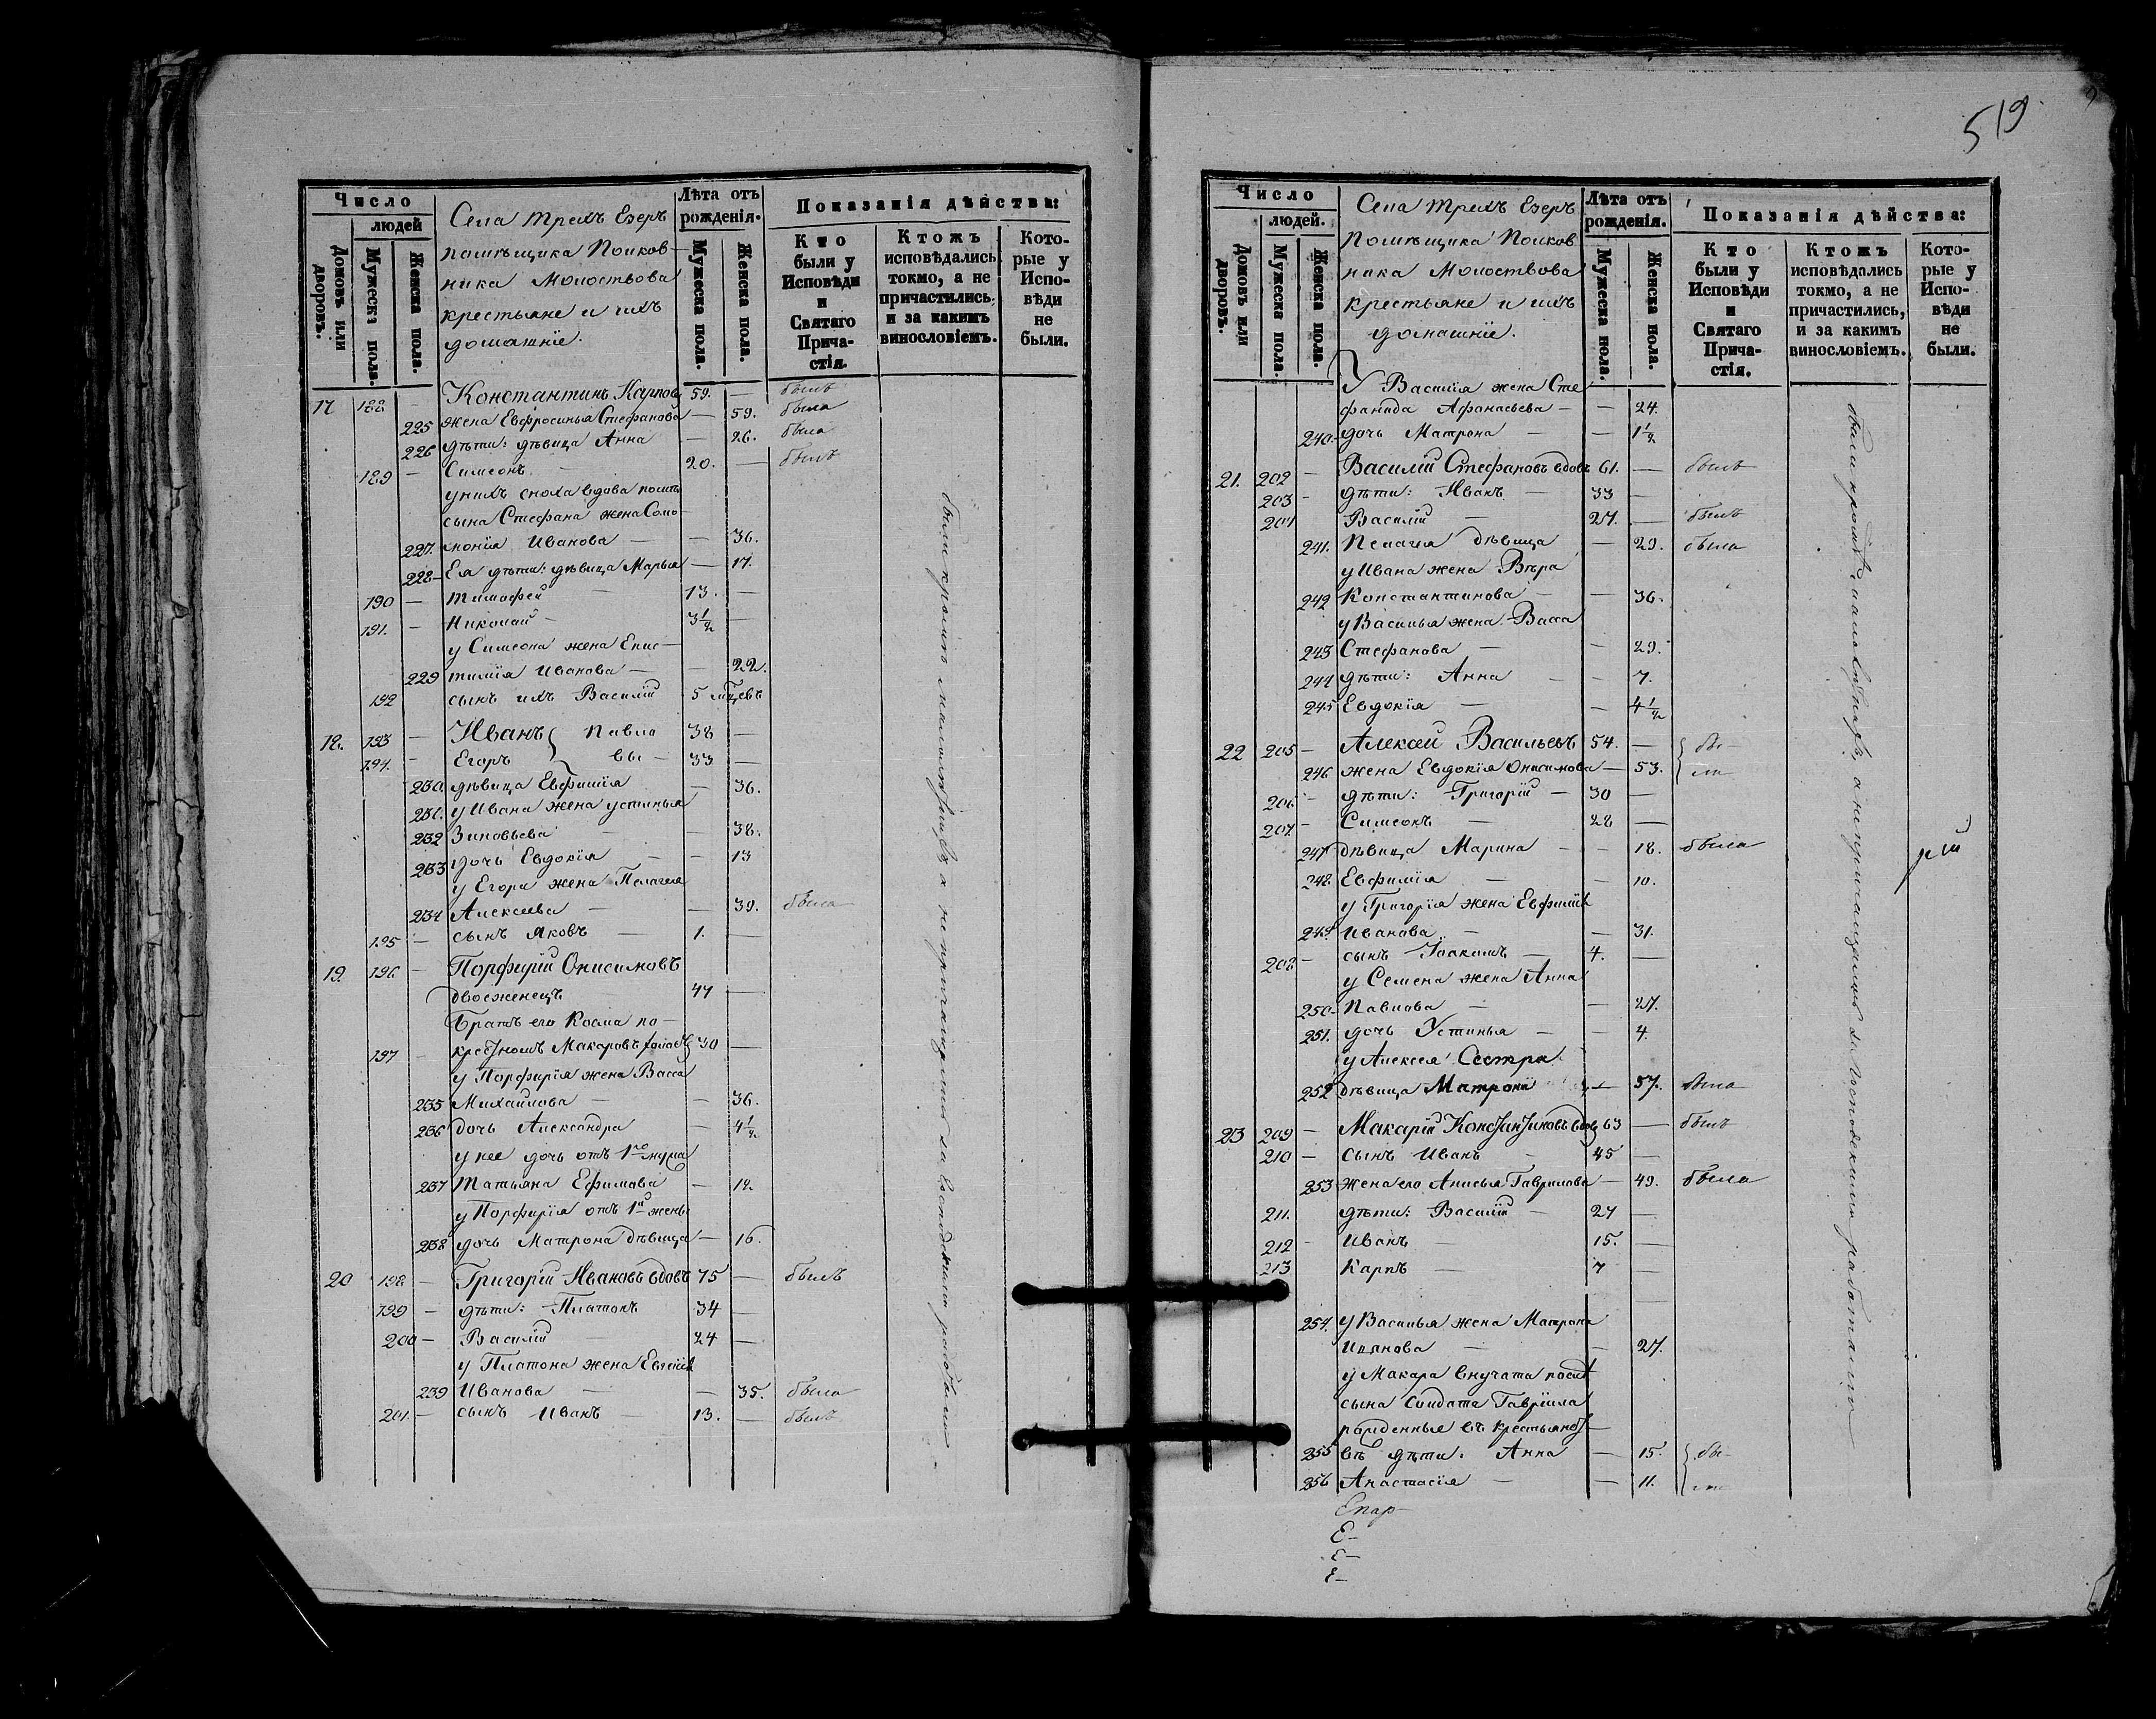 519
Число
людей
Домовъ или дворовъ.
Мужеска пола.
Женска пола.
Села Трехъ Езеръ
помѣщика Полков-
ника Молоствова
крестьяне и ихъ
домашніе.
Лѣта отъ рожденія.
Мужеска пола.
Женска пола.
Показанія дѣйства:
Кто были у Исповѣди и Святаго Причастія.
Ктожъ исповѣдались токмо, а не причастились, и за какимъ винословіемъ.
Которые у Исповѣди не были.
17 188 — Константинъ Карповъ 59. — былъ
225 жена Евфросинья Стефанова — 59. была
226 дѣти: дѣвица Анна — 26. была
189 — Симеонъ 20. — былъ
у нихъ сноха вдова
сына Стефана жена Соло-
227. монія Иванова — — 36.
228 — Ея дѣти: дѣвица Марья — 17.
190 — Тимофей — 13. —
191. — Николай — 3 1/2 —
у Симеона жена Епис-
229 тимія Иванова — — 22.
192 сынъ ихъ Василій 5 мцевъ
18. 193 — Иванъ } Павло 38 —
194. — Егоръ } вы — 33 —
230. дѣвица Евфимія — 36.
231. у Ивана жена Устинья
232 Зиновьева — — 38.
233 дочь Евдокія — — 13
у Егора жена Пелагея
234 Алексеева — — 39. была
195 — сынъ Яковъ — 1. —
19. 196 — Порфирій Онисимовъ
двоеженецъ 44 —
Братъ его Косма по-
197 — Макаровъ 30 —
у Порфирія жена Васса
235 Михайлова — — 36.
236 дочь Александра — 4 1/2
у нее дочь отъ 1го мужа
237 Татьяна Ефимова — 12
у Порфирія отъ 1й жены
238 дочь Матрона дѣвица — 16.
20 198 — Григорій Ивановъ вдовъ 75 — былъ
199 — дѣти: Платонъ 34 —
200 — Василій 24 —
у Платона жена
239 Иванова — — 35. была
201. — сынъ Иванъ — 13. — былъ
были кромѣ а не причащались за Господскими работами
Число
людей.
Домовъ или дворовъ.
Мужеска пола.
Женска пола.
Села Трехъ Езеръ
Помѣщика Полков
ника Молоствова
крестьяне и ихъ
домашніе.
Лѣта отъ рожденія.
Мужеска пола.
Женска пола.
Показанія дѣйства:
Кто были у Исповѣди и Святаго Причастія.
Ктожъ исповѣдались токмо, а не причастились, и за какимъ винословіемъ.
Которые у Исповѣди не были.
У Василія жена Сте
фанида Афанасьева — — 24.
240. дочь Матрона — — 1 1/2
21. 202 — Василій Стефановъ вдовъ 61. — былъ
203 — дѣти: Иванъ — 33 —
204 Василій — 27. — былъ
241. Пелагея дѣвица — 29. была
у Ивана жена Вѣра
242 Константинова — — 36.
у Василья жена Васса
243 Стефанова — — 29.
244 дѣти: Анна — — 7.
245 Евдокія — — 4 1/2
22 205 — Алексей Васильевъ 54. — { бы-
246 жена Евдокія Онисимова — 53. { ли
206 — дѣти: Григорій — 30 —
207. — Симеонъ — 28 —
247 дѣвица Марина — — 18. была
248. Евфимія — — 10.
у Григорія жена Евфимія
249. Иванова — — 31.
208 — сынъ Іоакимъ — 4. —
у Семена жена Анна
250 — Павлова — — 27.
251. дочь Устинья — — 4.
у Алексея Сестра
252 дѣвица Матрона — 57. была
23 209 — Макарій Константиновъ вдов 63 — былъ
210 — сынъ Иванъ — 45 —
253 жена его Анисья Гаврилова — 49. была
211. дѣти: Василій — 27 —
212 — Иванъ — 15. —
213 Карпъ — 7 —
254. у Василья жена Матрона
Иванова — — 27.
у Макара внучата
сына Солдата Гавріила
рожденные въ крестьянст-
255 вѣ дѣти: Анна — 15. { бы-
256 Анастасія — — 11. { ли
были кромѣ а не причащались за Господскими работами
Епар-
Е-
Е-
Е-